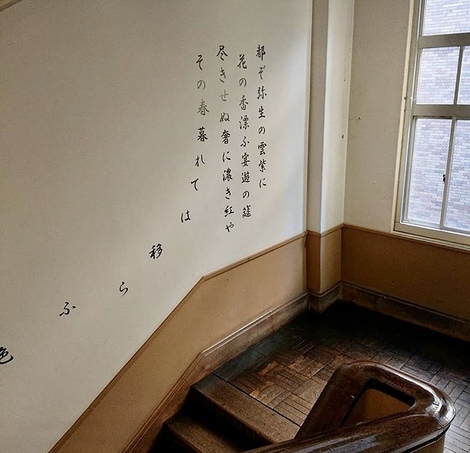 都ぞ弥生の雲紫に
花の香漂ふ宴遊の筵
尽きせぬ奢に濃き紅や
その春暮れては移らふ色